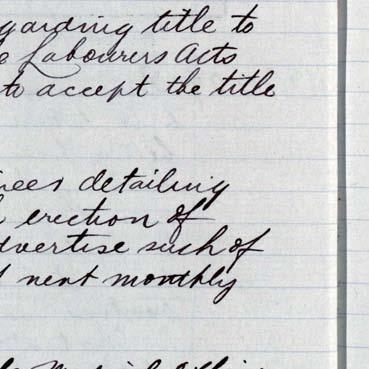 garding title to
e Labourers Acts
to accept the title
neer detailing
erection of
dvertise such of
next monthly